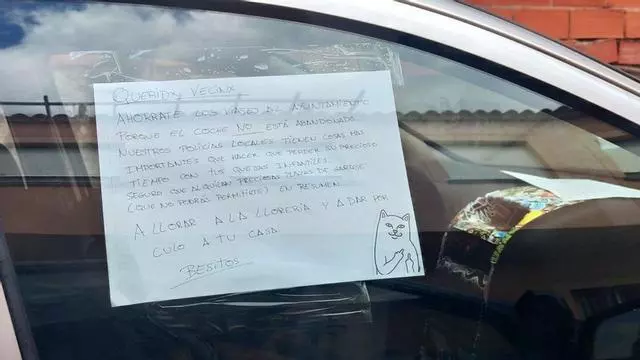 QUERIDX VECINX
AHÓRRATE LOS VIAJES AL AYUNTAMIENTO
PORQUE EL COCHE NO ESTÁ ABANDONADO.
NUESTROS POLICÍAS LOCALES TIENEN COSAS MÁS
IMPORTANTES QUE HACER QUE PERDER SU PRECIOSO
TIEMPO CON TUS QUEJAS INFANTILES.
SEGURO QUE ALQUILAN PRECIOSAS PLAZAS DE GARAJE
(QUE NO PODRÁS PERMITIRTE) EN RESUMEN
A LLORAR A LA LLORERÍA Y A DAR POR
CULO A TU CASA.
BESITOS